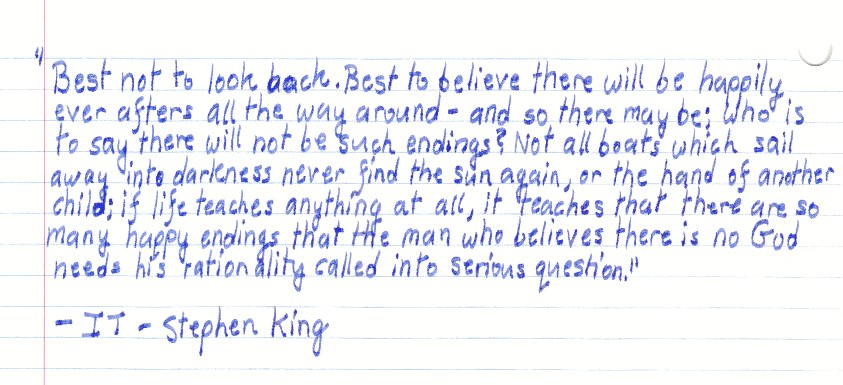 "Best not to look back. Best to believe there will be happily
ever afters all the way around - and so there may be; who is
to say there will not be such endings? Not all boats which sail
away into darkness never find the sun again, or the hand of another
child; if life teaches anything at all, it teaches that there are so
many happy endings that the man who believes there is no God
needs his rationality called into serious question."
- IT - Stephen King